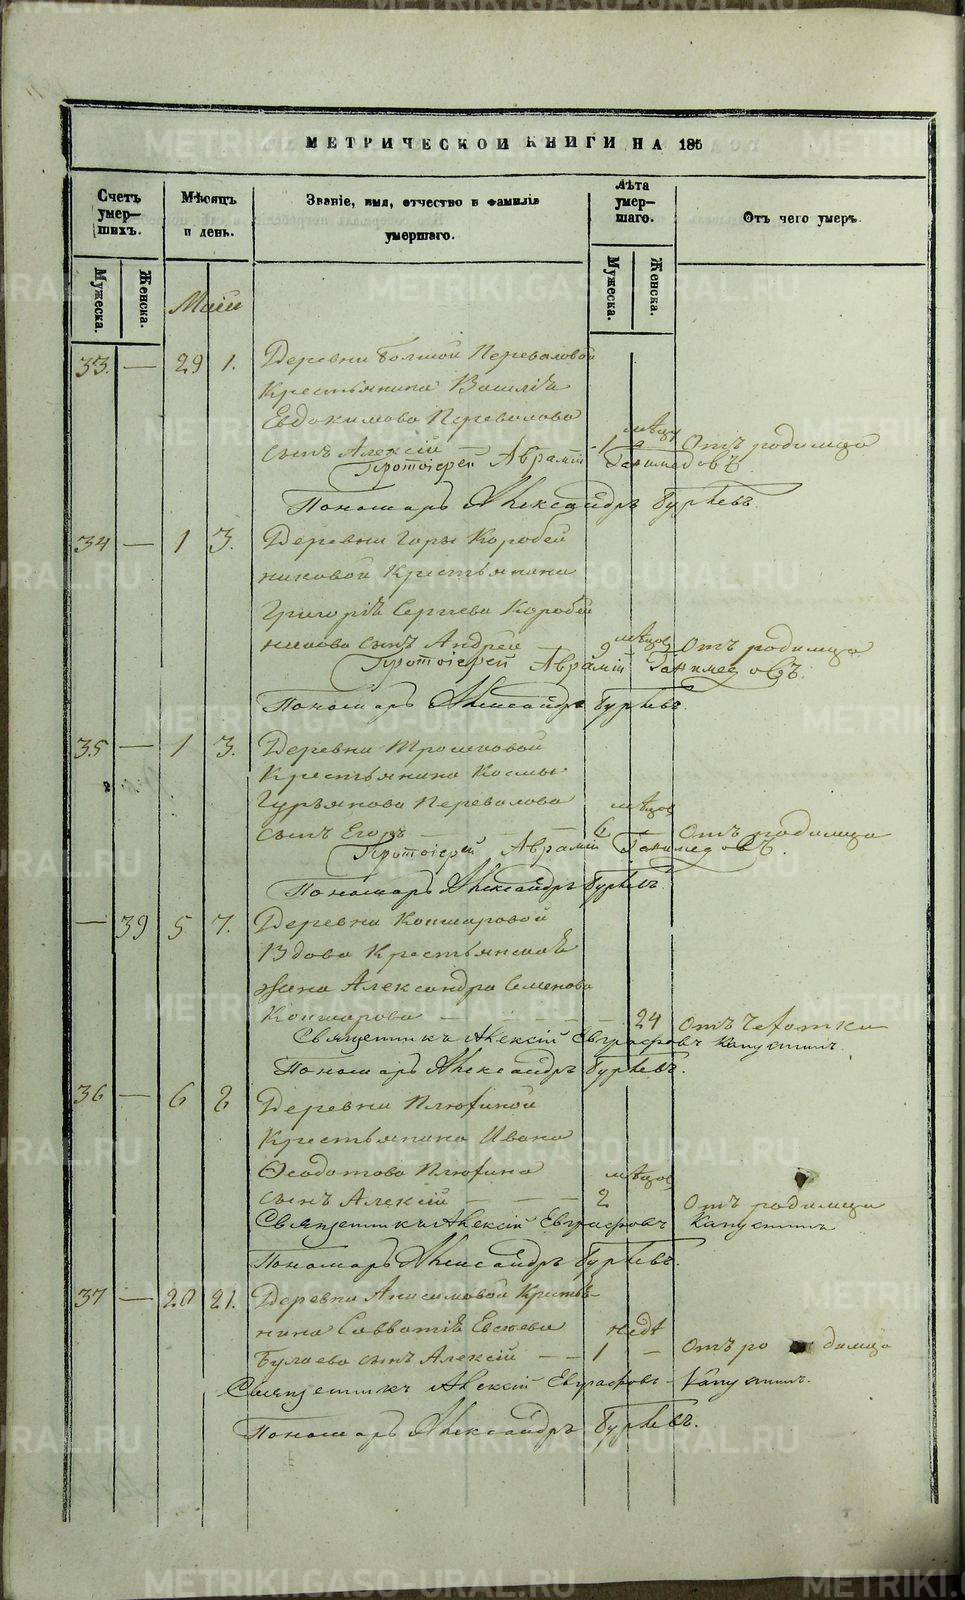 МЕТРИЧЕСКОЙ КНИГИ НА 185
Счетъ умер-шихъ.
Мѣсяцъ и день.
Званіе, имя, отчество и фамилія умершаго.
Лѣта умер-шаго.
Отъ чего умеръ.
Мужеска.
Женска.
Мужеска.
Женска.
Маiи
33. — 29 1. Деревни Большой Переваловой
Крестьянина Василія
Евдокимова Перевалова
сынъ Алексій — 1 мѣсяц Отъ родимца
Протоіерей Аврамій Ганимедовъ
Пономарь Александръ Гурьевъ.
34 — 1 3. Деревни Горы Коробей
никовой Крестьянина
Григорія Сергѣева Коробей
никова сынъ Андрей — 9 мѣсяцов Отъ родимца
Протоіерей Аврамій Ганимедовъ.
Пономарь Александръ Гурьевъ.
35 — 1 3. Деревни Трошковой
Крестьянина Космы
Гурьянова Перевалова
сынъ Егоръ — — 6 мѣсяцов Отъ родимца
Протоіерей Аврамій Ганимедовъ.
Пономарь Александръ Гурьевъ.
— 39 5 7. Деревни Кошкаровой
Вдова Крестьянская
жена Александра Семенова
Кошкарова — — — — 24 Отъ чахотки
Священникъ Алексій Евграфовъ Капустинъ.
Пономарь Александръ Гурьевъ.
36 — 6 8 Деревни Плюхиной
Крестьянина Ивана
Ѳеодотова Плюхина
сынъ Алексій — — — 2 мѣсяцов Отъ родимца
Священникъ Алексій Евграфовъ Капустинъ
Пономарь Александръ Гурьевъ.
37 — 20 21. Деревни Анисимовой Крестья-
нина Савватія Евсеева
Булаева сынъ Алексій — — 1 недѣ — Отъ родимца
Священникъ Алексій Евграфовъ Капустинъ.
Пономарь Александръ Гурьевъ.
METRIKI.GASO-URAL.RU